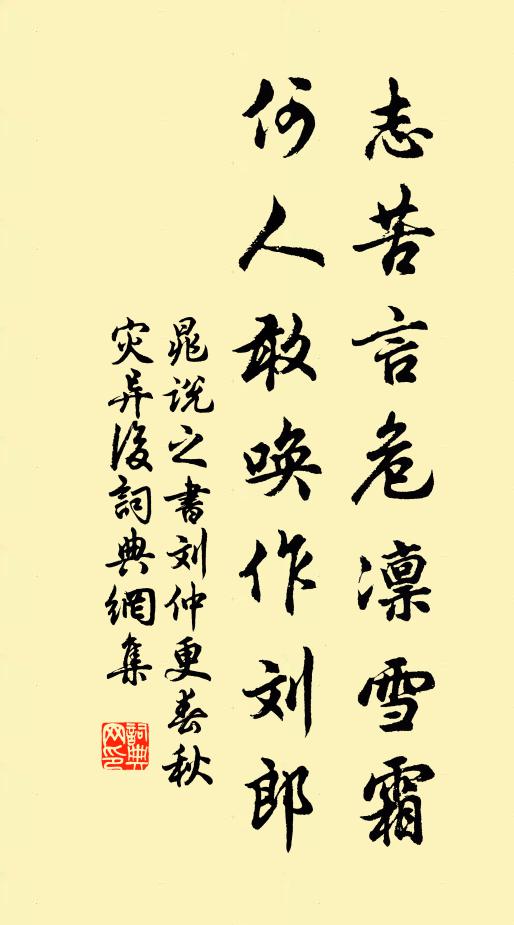 志苦言危凛雪霜
何人敢唤作刘郎
晁说之书刘仲更春秋
灾异后詞典網集
詞典
网印